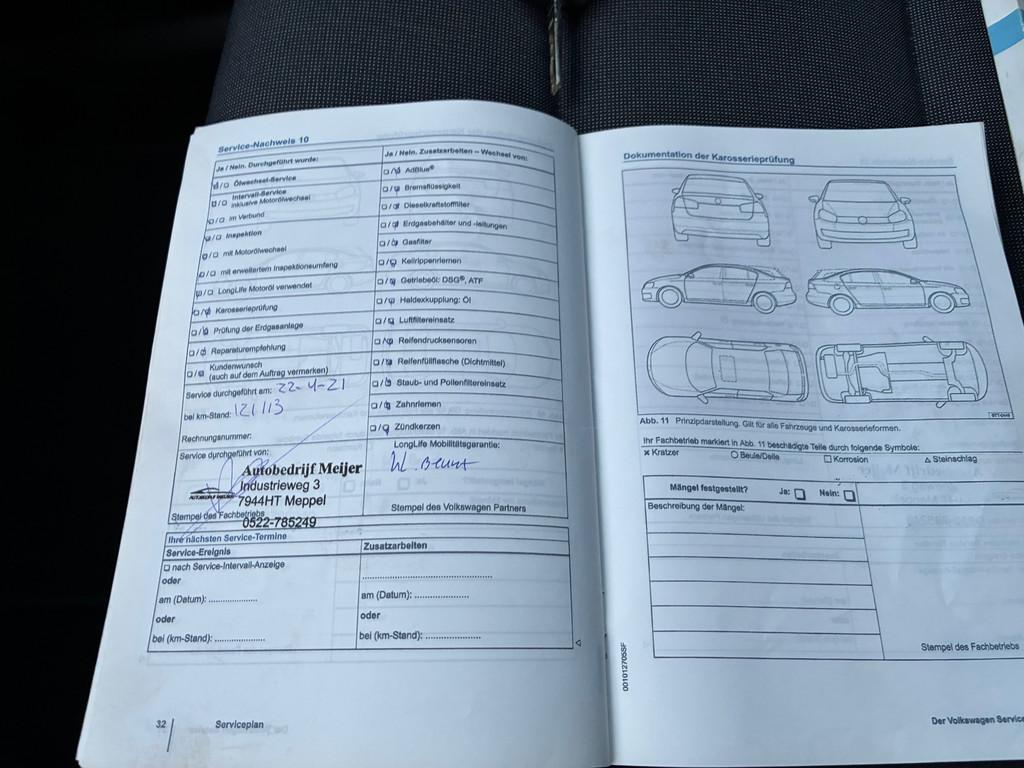 Service-Nachweis 10
Ja / Nein. Durchgeführt wurde:
Ölwechsel-Service
Intervall-Service
inklusive Motorölwechsel
im Verbund
Inspektion
mit Motorölwechsel
mit erweitertem Inspektionsumfang
LongLife Motoröl verwendet
Karosserieprüfung
Prüfung der Erdgasanlage
Reparaturempfehlung
Kundenwunsch
(auch auf dem Auftrag vermerken)
Service durchgeführt am: 22-4-21
bei km-Stand: 121113
Rechnungsnummer:
Service durchgeführt von:
Autobedrijf Meijer
Industrieweg 3
7944HT Meppel
Stempel des Fachbetriebs
0522-785249
Ja / Nein. Zusatzarbeiten – Wechsel von:
AdBlue®
Bremsflüssigkeit
Dieselkraftstofffilter
Erdgasbehälter und -leitungen
Gasfilter
Keilrippenriemen
Getriebeöl: DSG®, ATF
Haldexkupplung: Öl
Luftfiltereinsatz
Reifendrucksensoren
Reifenfüllflasche (Dichtmittel)
Staub- und Pollenfiltereinsatz
Zahnriemen
Zündkerzen
LongLife Mobilitätsgarantie:
Stempel des Volkswagen Partners
Ihre nächsten Service-Termine
Service-Ereignis
nach Service-Intervall-Anzeige
oder
am (Datum): ....................
oder
bei (km-Stand): ....................
Zusatzarbeiten
am (Datum): ....................
oder
bei (km-Stand): ....................
32 Serviceplan
Dokumentation der Karosserieprüfung
Abb. 11 Prinzipdarstellung. Gilt für alle Fahrzeuge und Karosserieformen.
Ihr Fachbetrieb markiert in Abb. 11 beschädigte Teile durch folgende Symbole:
× Kratzer ○ Beule/Delle □ Korrosion △ Steinschlag
Mängel festgestellt? Ja: □ Nein: □
Beschreibung der Mängel:
Stempel des Fachbetriebs
001012705SF
Der Volkswagen Service